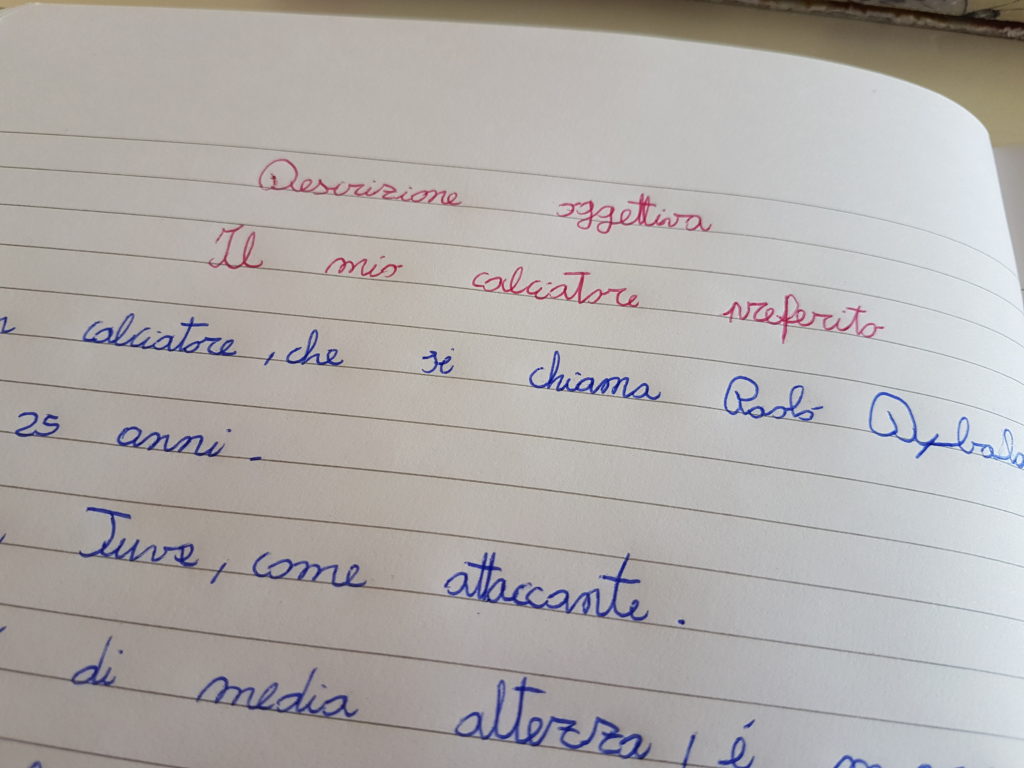 Descrizione oggettiva
Il mio calciatore preferito
calciatore, che si chiama Paolo Dybala
25 anni.
Juve, come attaccante.
di media altezza, é